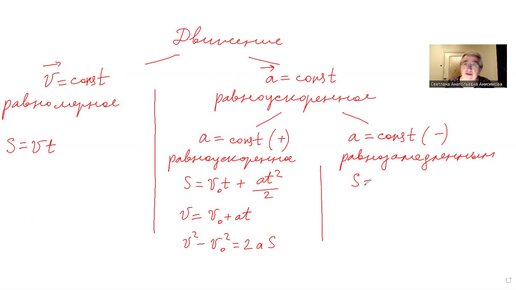 Движение
v = const
равномерное
S = vt
a = const
равноускоренное
a = const (+)
равноускоренное
S = v₀t + at²/2
v = v₀ + at
v² - v₀² = 2aS
a = const (-)
равнозамедленным
S =
Светлана Анатольевна Анисимова